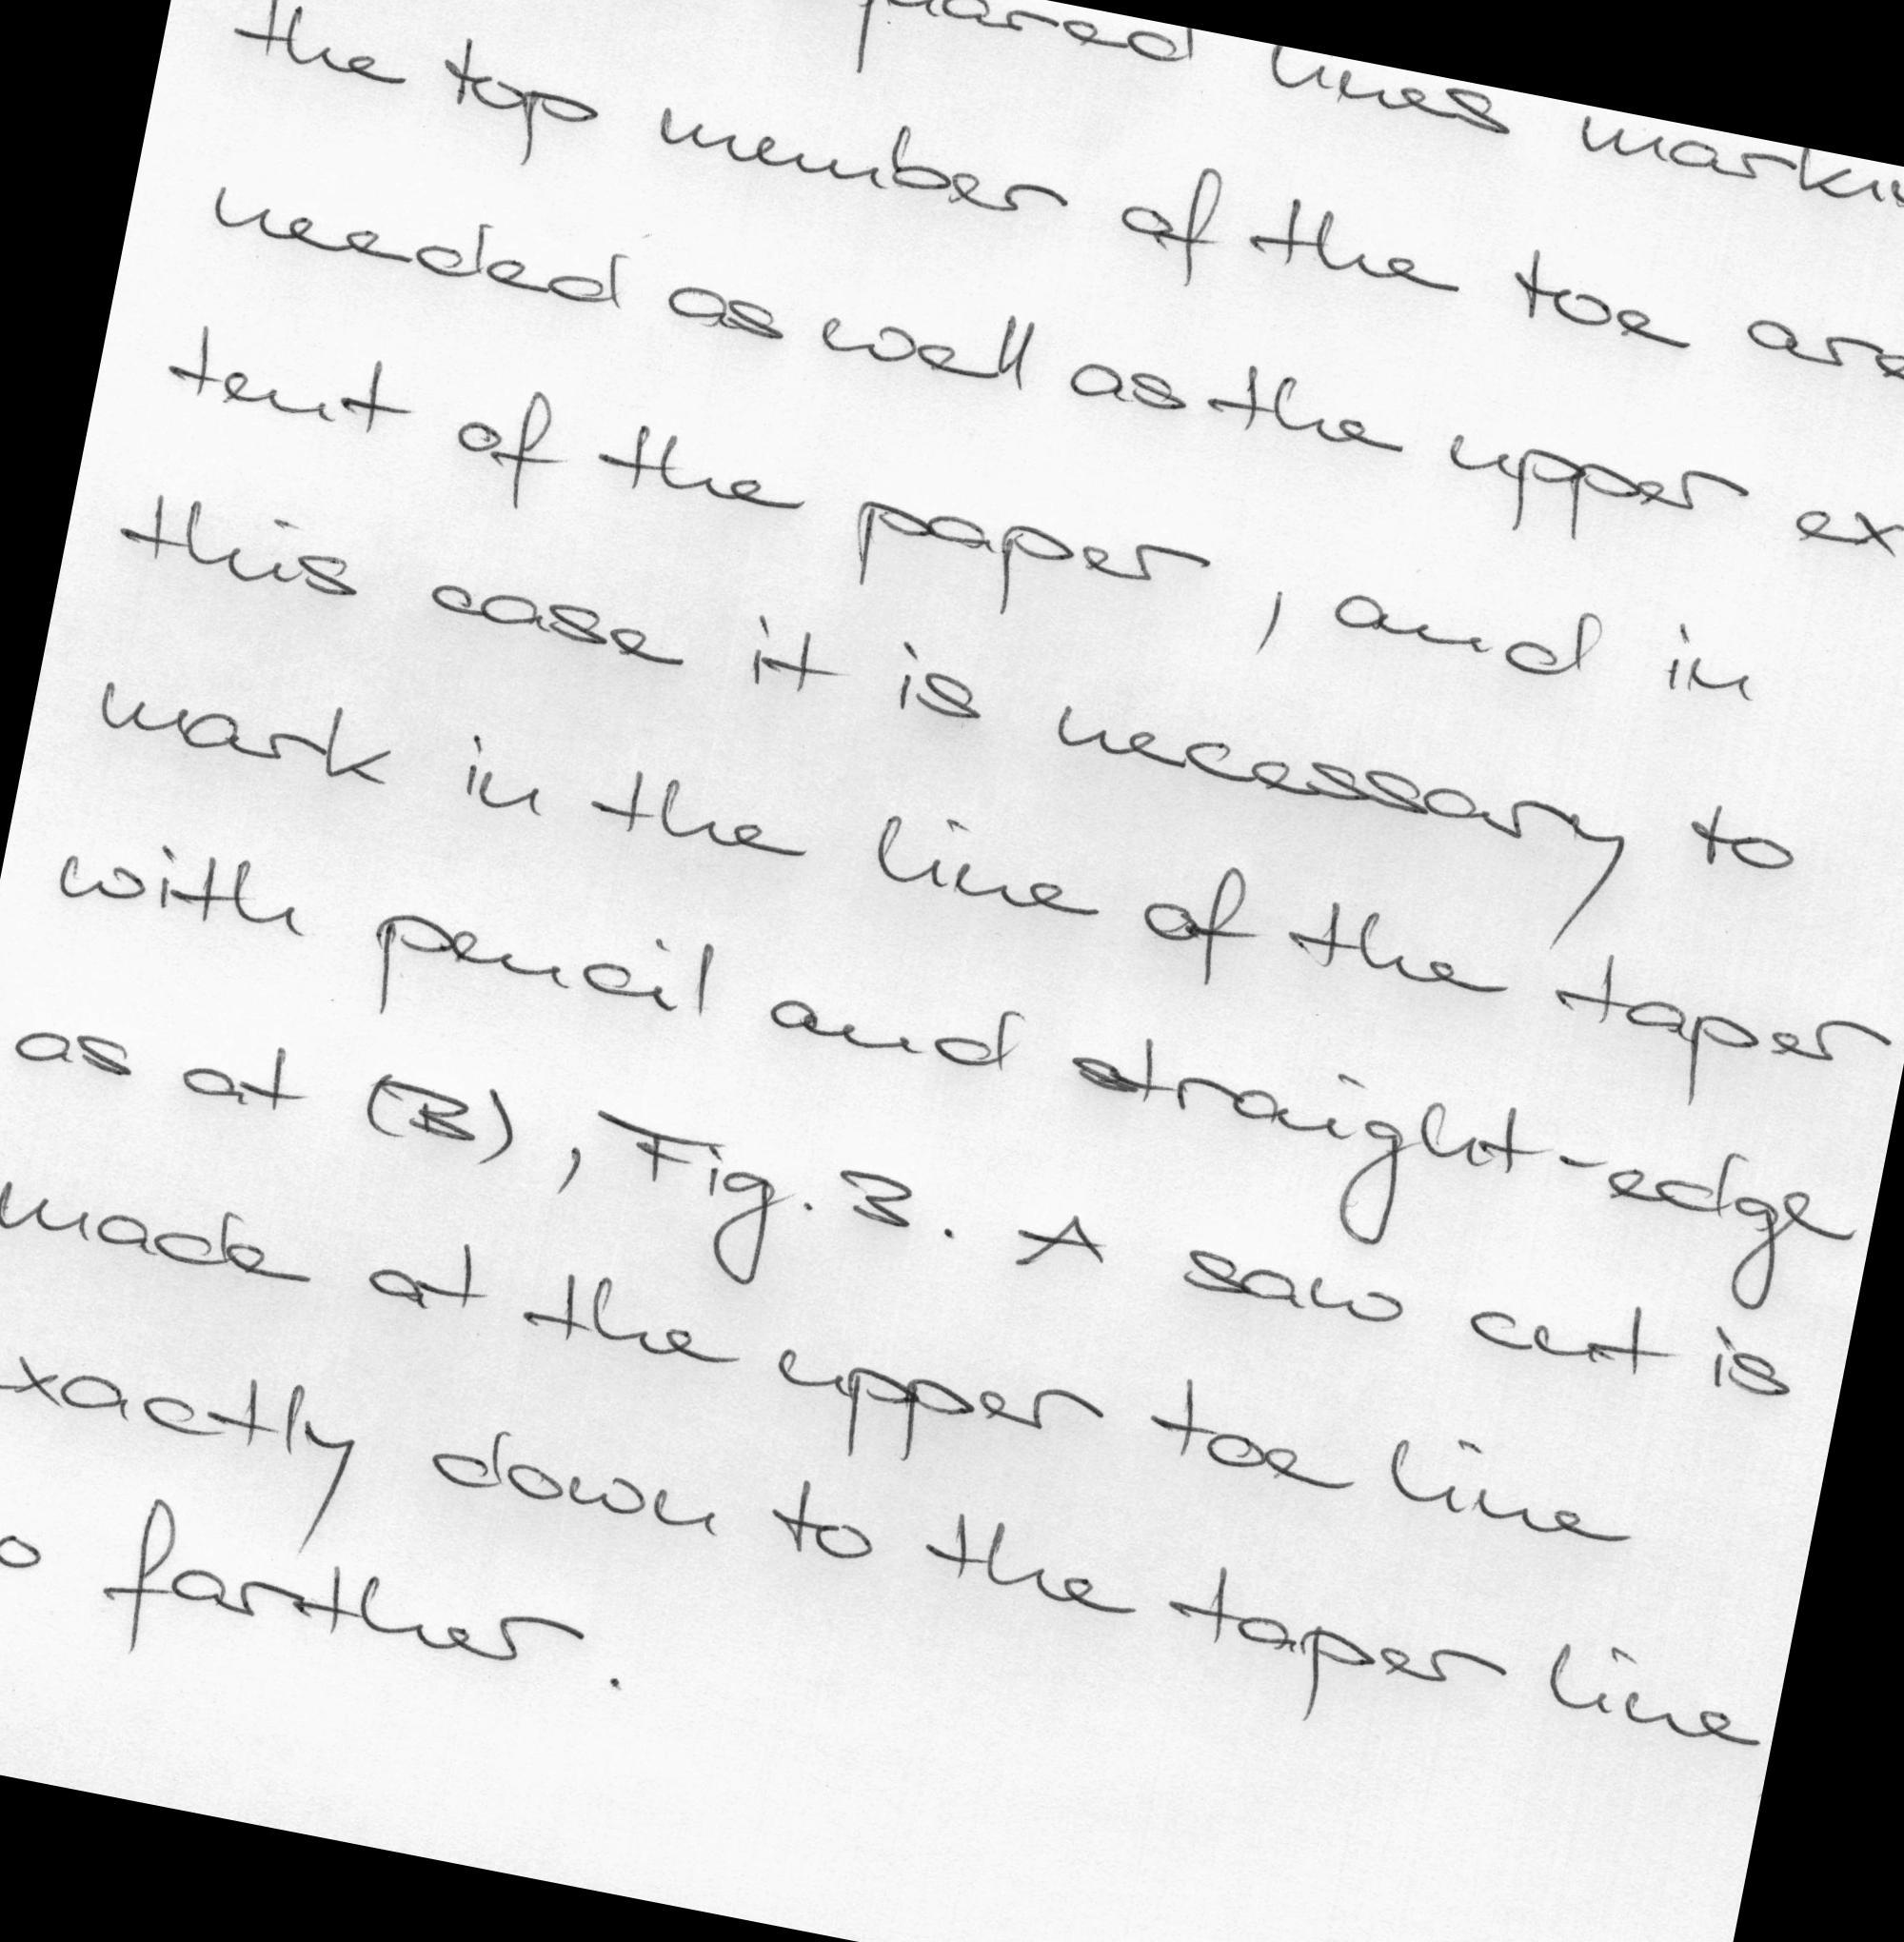 lines
the top member of the toe are
needed as well as the upper ex
tent of the paper, and in
this case it is necessary to
mark in the line of the taper
with pencil and straight-edge
as at (B), Fig. 3. A saw cut is
made at the upper toe line
xactly down to the taper line
o farther.